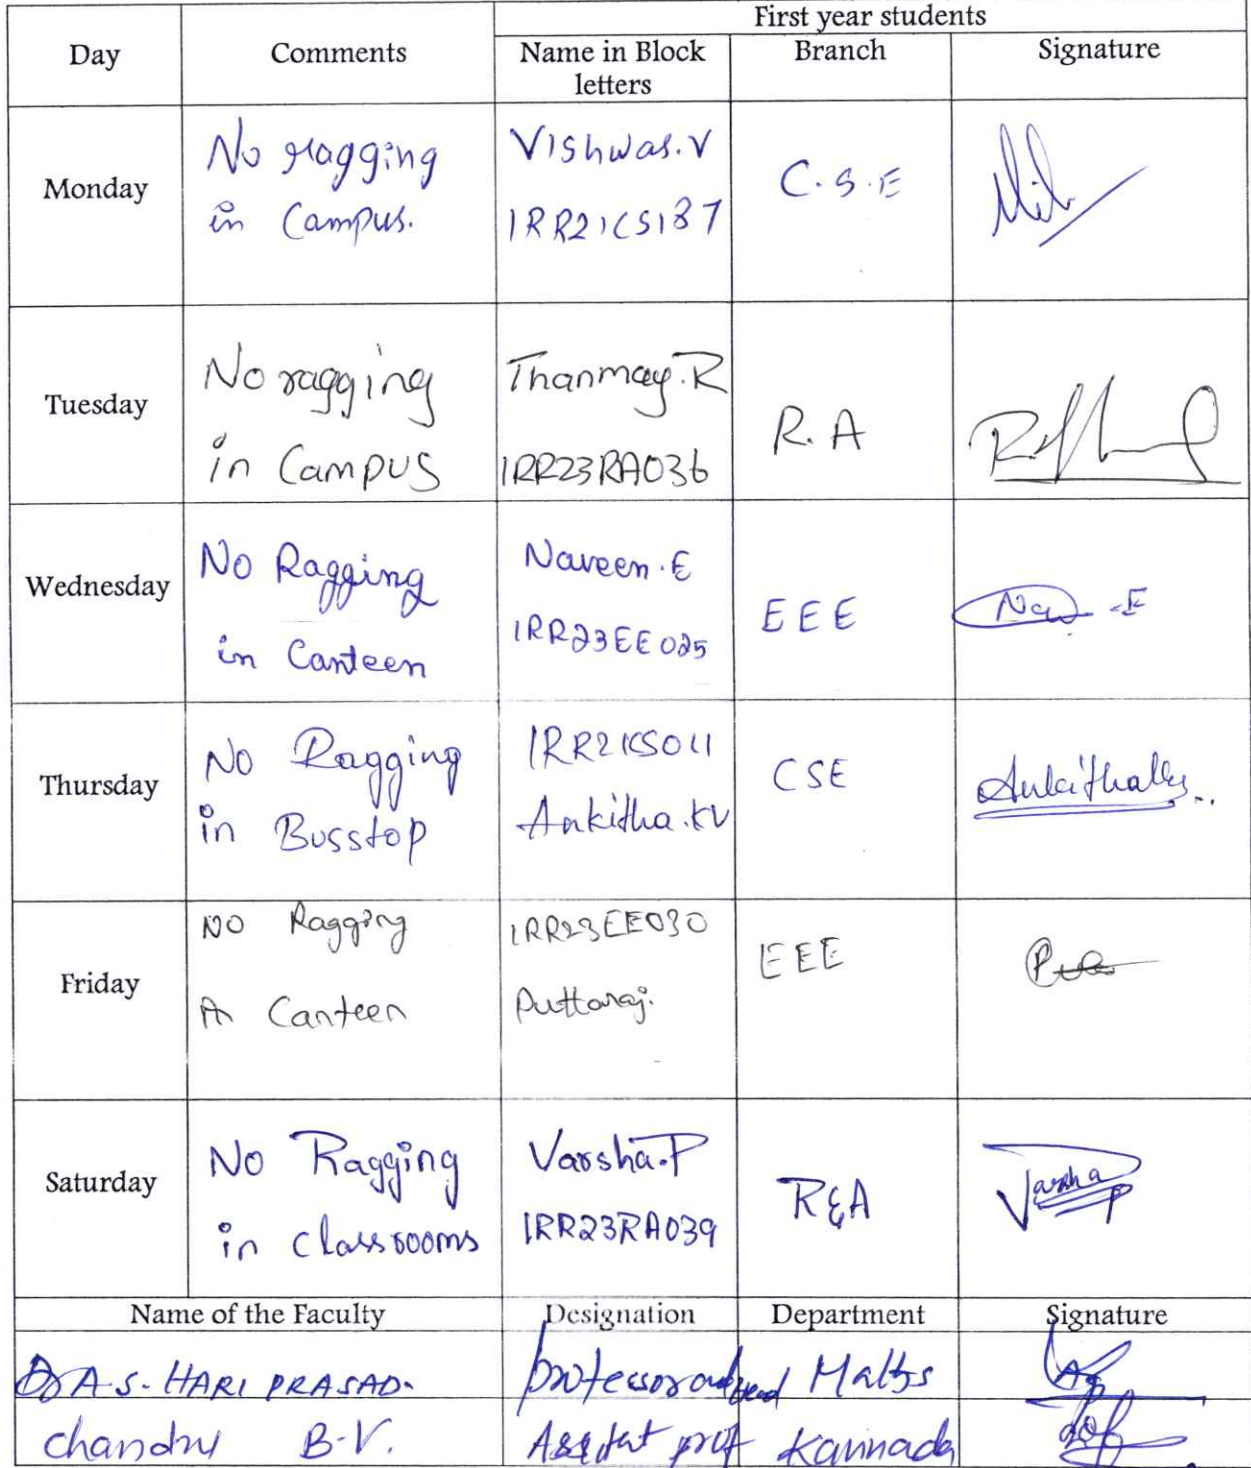 First year students
Day Comments Name in Block letters Branch Signature
Monday
No ragging
in Campus.
Vishwas.V
1RR21CS187
C.S.E
Tuesday
No ragging
in Campus
Thanmay.R
1RR23RA036
R.A
Wednesday
No Ragging
in Canteen
Naveen.E
1RR23EE025
EEE
Thursday
No Ragging
in Busstop
1RR21CS011
Ankitha.KV
CSE
Ankitha
Friday
NO Ragging
A Canteen
1RR23EE030
Puttaraj.
EEE
Saturday
No Ragging
in classrooms
Varsha.P
1RR23RA039
R&A
Varsha P
Name of the Faculty Designation Department Signature
Dr A.S. HARI PRASAD. professor and Head Maths
Chandru B.V. Assistant prof Kannada